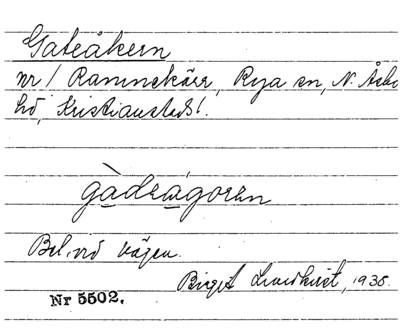 Gateåkern
nr 1 Rammekärr, Rya sn, N. Åsbo
hd, Kristianstads l.
gàdeágoren
Bel. vid vägen.
Birgit Lundkvist, 1935.
Nr 5502.